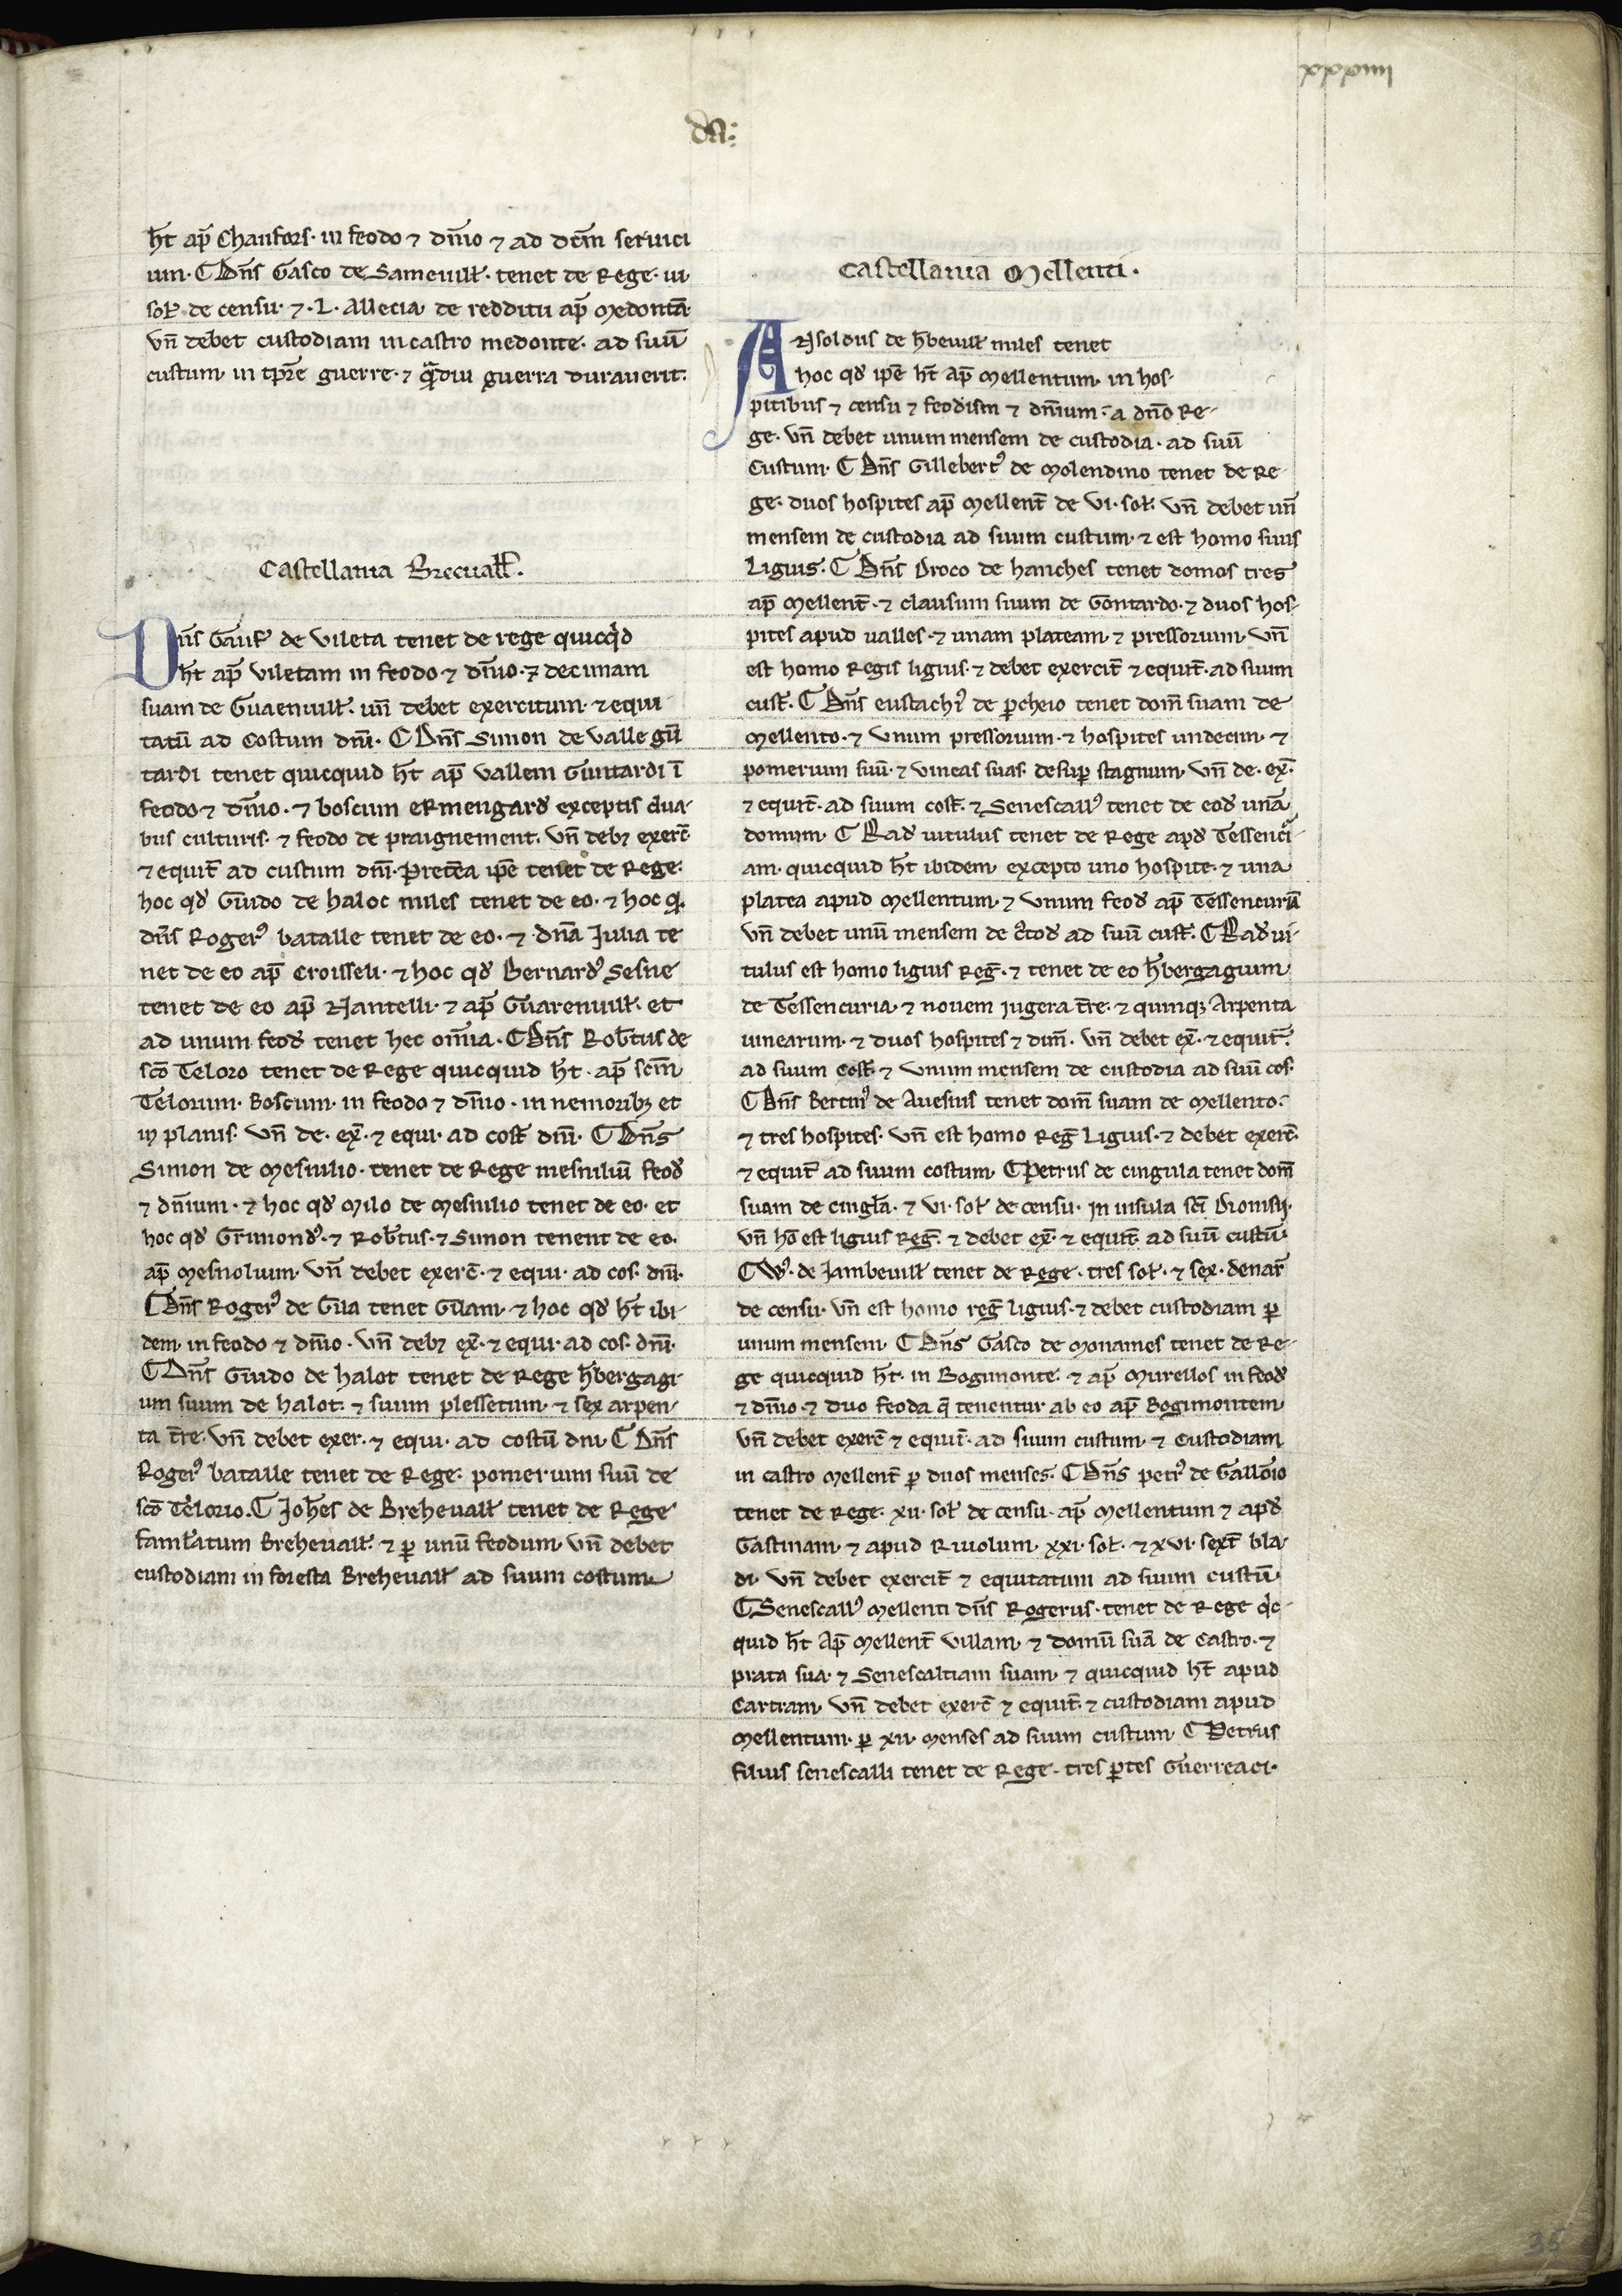 xxxiiii
da:
h̅t ap̅ Chaufors· in feodo ⁊ d̅mo ⁊ ad dc̅m seruici
um· ¶ Dn̅s Gasco de Sameuill̅· tenet de Rege· iii·
sol̅· de censu· ⁊ ·L· Allecia· de redditu ap̅ medonta̅·
vn̅ debet custodiam in castro medonte· ad suu̅
custum· in tp̅re guerre· ⁊ q̅diu guerra durauerit·
Castellania Brecuall̅·
Dn̅s Gauf' de Vileta tenet de rege quicq̇d
h̅t ap̅ Viletam in feodo ⁊ d̅mo· ⁊ decimam
suam de Guaenuill̅· un̅ debet exercitum· ⁊ equi
tatu̅ ad Costum dn̅i· ¶ Dn̅s Simon de Valle gu̅
tardi tenet quicquid h̅t ap̅ Vallem Guntardi i̅
feodo ⁊ d̅mo· ⁊ boscum eRmengard̅ exceptis dua·
bus culturis· ⁊ feodo de praignement· vn̅ debꝫ exerc̅·
⁊ equit̅ ad custum dn̅i· Pretea̅ ip̅e tenet de Rege·
hoc qd̅ Guido de haloc miles tenet de eo· ⁊ hoc q̇·
dn̅s Roger⁹ batalle tenet de eo· ⁊ dn̅a Iulia te
net de eo ap̅ Crousseli· ⁊ hoc qd̅ Bernard⁹ Sesne
tenet de eo ap̅ Nantelli· ⁊ ap̅ Guarenuill̅· et
ad unum feod̅ tenet hec om̅ia· ¶ Dn̅s Rob̅tus de
sc̅o Teloro tenet de Rege quicquid h̅t· ap̅ sc̅m
Telorum· Boscum· in feodo ⁊ d̅mo· in nemoribꝫ et
in planis· vn̅ de· ex̅· ⁊ equi· ad cost̅ dn̅i· ¶ Dn̅s
Simon de Mesnilio· tenet de Rege mesniliu̅ feod̅
⁊ dn̅ium· ⁊ hoc qd̅ Milo de Mesnilio tenet de eo· et
hoc qd̅ Grimond⁹· ⁊ Rob̅tus· ⁊ Simon tenent de eo·
ap̅ mesnolium· vn̅ debet exerc̅· ⁊ equi· ad cos· dn̅i·
¶ Dn̅s Roger⁹ de Gila tenet Gilam· ⁊ hoc qd̅ h̅t ibi·
dem· in feodo ⁊ d̅mo· vn̅ debꝫ ex̅· ⁊ equi· ad cos· dn̅i·
¶ Dn̅s Guido de halot tenet de Rege h̅bergagi·
um suum de halot· ⁊ suum plessetum· ⁊ sex arpen·
ta t̅re· vn̅ debet exer· ⁊ equi· ad costu̅ dni· ¶ Dn̅s
Roger⁹ batalle tenet de Rege· pomerium suu̅ de
sc̅o Telorio· ¶ Joh̅es de Breheuall̅ tenet de Rege
famil̅atum Breheuall̅· ⁊ ꝑ unu̅ feodum· vn̅ debet
custodiam in foresta Breheuall̅ ad suum costum·
Castellania Mellenti·
ANsoldus de h̅beuill̅ miles tenet
hoc qd̅ ip̅e h̅t ap̅ Mellentum· in hos·
pitibus ⁊ censu ⁊ feodum ⁊ dn̅ium· a dn̅o Re·
ge· vn̅ debet unum mensem de custodia· ad suu̅
Custum· ¶ Dn̅s Gillebert⁹ de Molendino tenet de Re
ge· duos hospites ap̅ Mellent̅ de vi· sol̅· vn̅ debet un̅
mensem de custodia ad suum custum· ⁊ est homo suus
Ligius· ¶ Dn̅s Droco de hanches tenet domos tres
ap̅ Mellent̅· ⁊ clausum suum de Gontardo· ⁊ duos hos·
pites apud ualles· ⁊ unam plateam· ⁊ pressorium· vn̅
est homo Regis ligius· ⁊ debet exercit̅ ⁊ equit̅· ad suum
cust̅· ¶ Dn̅s eustachi⁹ de ꝑcheio tenet dom̅ suam de
Mellento· ⁊ Vnum pressorium· ⁊ hospites undecim· ⁊
pomerium suu̅· ⁊ vineas suas· desuꝑ stagnum· vn̅ de· ex̅·
⁊ equit̅· ad suum cost̅· ⁊ Senescall⁹ tenet de eod̅ una̅
domum· ¶ Rad̅ uitulus tenet de Rege apd̅ Tessenc̅i·
am· quicquid h̅t ibidem· excepto uno hospite· ⁊ una
platea apud Mellentum· ⁊ Vnum feod̅ ap̅ Tessencuria̅
vn̅ debet unu̅ mensem de c̅tod̅ ad suu̅ cust̅· ¶ Rad̅ ui·
tulus est homo ligius Reg̅· ⁊ tenet de eo h̅bergagium
de Tessencuria· ⁊ nouem iugera t̅re· ⁊ quinqꝫ Arpenta
uinearum· ⁊ duos hospites ⁊ dim̅· vn̅ debet ex̅· ⁊ equit̅·
ad suum Cost̅· ⁊ Vnum mensem de custodia ad suu̅ cos·
¶ Dn̅s Bertin⁹ de Auesius tenet dom̅ suam de Mellento·
⁊ tres hospites· vn̅ est homo Reg̅ Ligius· ⁊ debet exerc̅·
⁊ equit̅ ad suum costum· ¶ Petrus de cingula tenet dom̅
suam de cingl̅a· ⁊ vi· sol̅ de censu· in insula sc̅i Dionisii·
vn̅ ho̅ est ligius Reg̅· ⁊ debet ex̅· ⁊ equit̅· ad suu̅ custu̅·
¶ W⁹· de Jambeuill̅ tenet de Rege· tres sol̅· ⁊ sex· denar̅
de censu· vn̅ est homo reg̅ ligius· ⁊ debet custodiam ꝑ
unum mensem· ¶ Dn̅s Gasco de Monames tenet de Re·
ge quicquid h̅t· in Bogimonte· ⁊ ap̅ Murellos in feod̅
⁊ d̅mo· ⁊ duo feoda q̅ tenentur ab eo ap̅ Bogimontem·
vn̅ debet exerc̅ ⁊ equit̅· ad suum custum· ⁊ Custodiam
in castro Mellent̅ ꝑ duos menses· ¶ Dn̅s petr⁹ de Gallo̅io
tenet de Rege· xii· sol̅ de censu· ap̅ Mellentum ⁊ apd̅
Gastinam· ⁊ apud Riuolum· xxi· sol̅· ⁊ xvi· sext̅ bla·
di· vn̅ debet exercit̅ ⁊ equitatum ad suum custu̅·
¶ Senescall⁹ Mellenti dn̅s Rogerus· tenet de Rege q̇c·
quid h̅t Ap̅ Mellent̅ Villam· ⁊ domu̅ sua̅ de Castro· ⁊
prata sua· ⁊ Senescalciam suam· ⁊ quicquid h̅t apud
Cartram· vn̅ debet exerc̅ ⁊ equit̅· ⁊ custodiam apud
Mellentum· ꝑ xii· Menses ad suum custum· ¶ Petrus
filius senescalli tenet de Rege· tres ꝑtes Guerreaci·
35